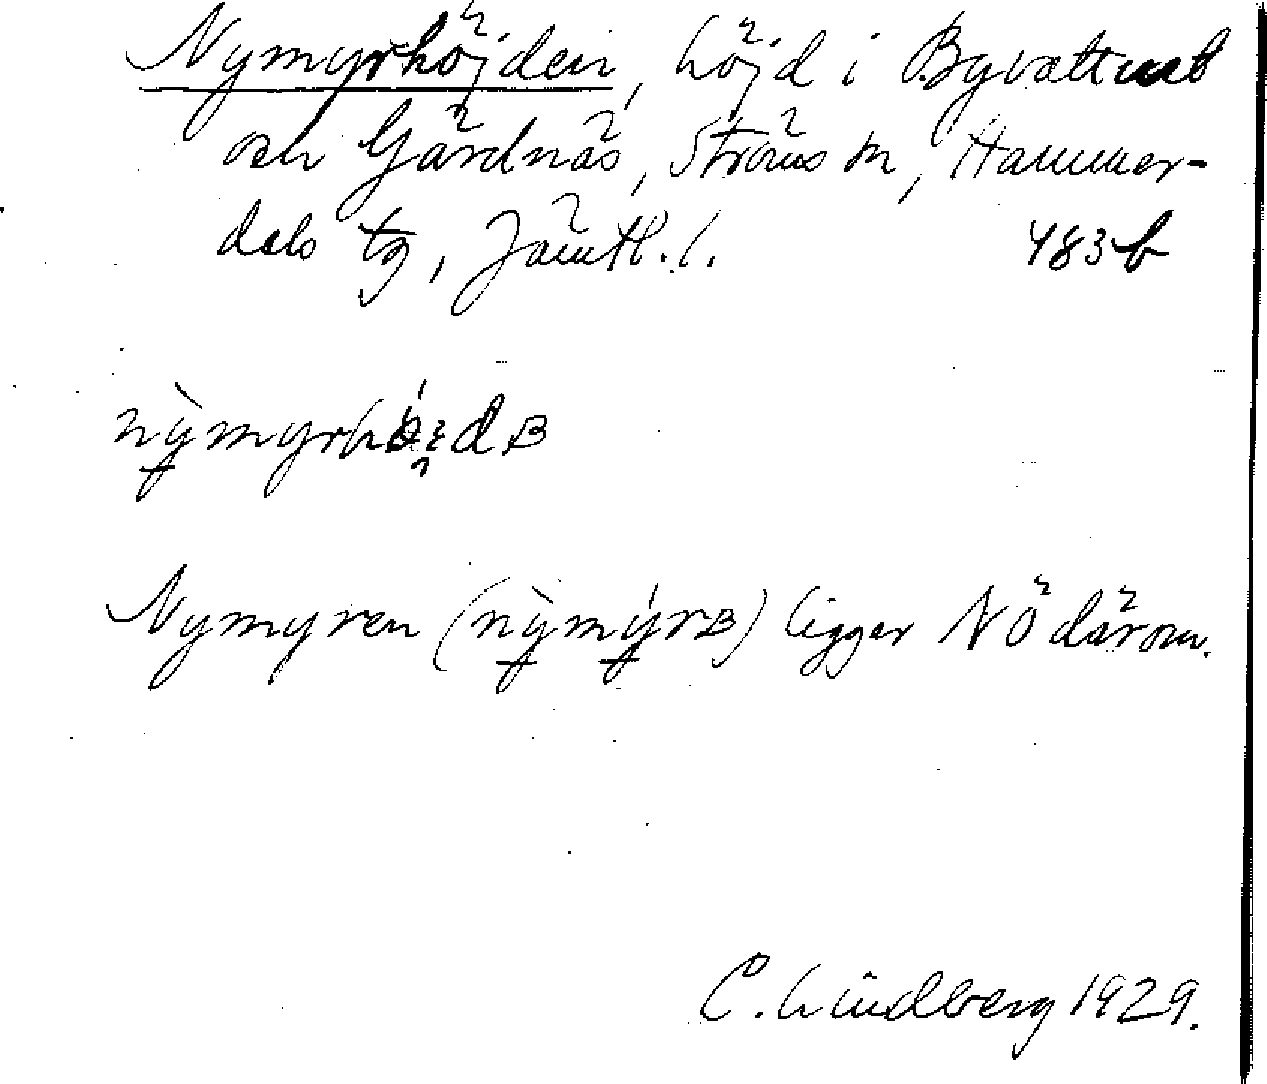 Nymyrhöjden, höjd i Byvattnet
och Gärdnäs, Ströms sn, Hammer-
dals tg, Jämtl. l. 483 b
Nymyren (nỳmýrʙ) ligger NÖ därom.
C. Lindberg 1929.